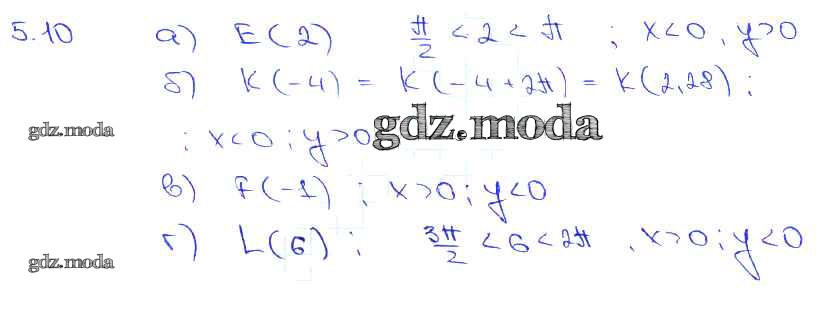 5.10 а) E(2) π/2 < 2 < π ; x<0, y>0
б) K(-4) = K(-4+2π) = K(2,28) ;
gdz.moda ; x<0 ; y>0 gdz.moda
в) F(-1) ; x>0 ; y<0
г) L(6) ; 3π/2 < 6 < 2π , x>0 ; y<0
gdz.moda